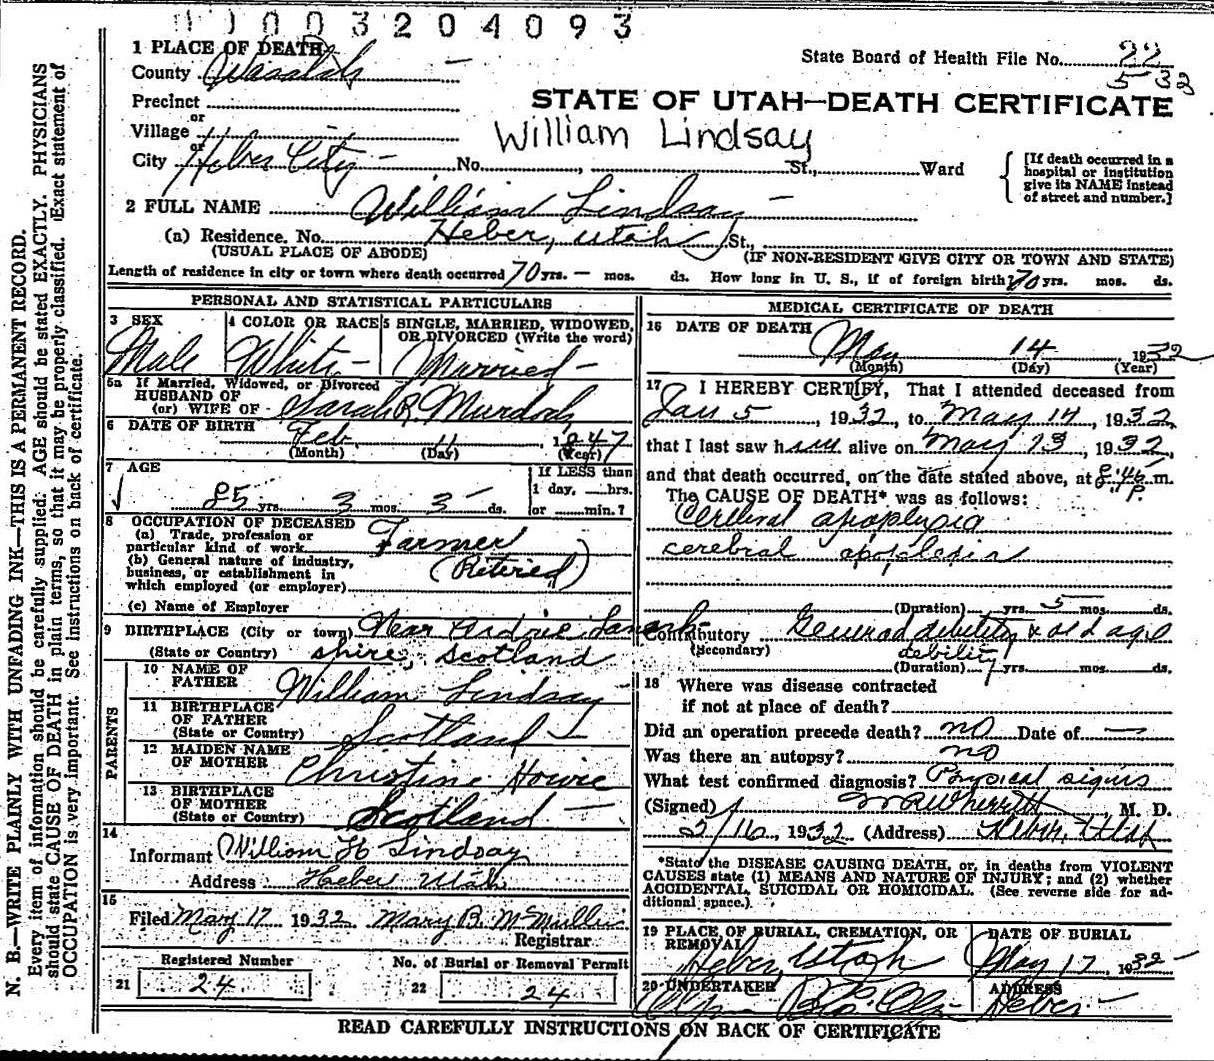 0 0 0 3 2 0 4 0 9 3
1 PLACE OF DEATH
State Board of Health File No. 22
County Wasatch
532
Precinct
STATE OF UTAH—DEATH CERTIFICATE
or
Village
William Lindsay
or
City Heber City No. , St., Ward
[If death occurred in a hospital or institution give its NAME instead of street and number.]
2 FULL NAME William Lindsay
(a) Residence. No. Heber, Utah St.,
(USUAL PLACE OF ABODE) (IF NON-RESIDENT GIVE CITY OR TOWN AND STATE)
Length of residence in city or town where death occurred 70 yrs. — mos. ds. How long in U. S., if of foreign birth? 70 yrs. mos. ds.
PERSONAL AND STATISTICAL PARTICULARS
3 SEX 4 COLOR OR RACE 5 SINGLE, MARRIED, WIDOWED,
OR DIVORCED (Write the word)
Male White Married
5a If Married, Widowed, or Divorced
HUSBAND OF
(or) WIFE OF Sarah R. Murdoch
6 DATE OF BIRTH Feb 11, 1847
(Month) (Day) (Year)
7 AGE If LESS than
1 day, hrs.
85 yrs. 3 mos. 3 ds. or min.?
8 OCCUPATION OF DECEASED
(a) Trade, profession or
particular kind of work Farmer
(b) General nature of industry,
business, or establishment in (Retired)
which employed (or employer)
(c) Name of Employer
9 BIRTHPLACE (City or town) Near Ardrie Lanark-
(State or Country) shire, Scotland
PARENTS
10 NAME OF
FATHER William Lindsay
11 BIRTHPLACE
OF FATHER
(State or Country) Scotland
12 MAIDEN NAME
OF MOTHER Christine Howie
13 BIRTHPLACE
OF MOTHER
(State or Country) Scotland
14
Informant William H Lindsay
Address Heber Utah
15
Filed May 17 1932 Mary B. McMullin
Registrar
Registered Number No. of Burial or Removal Permit
21 24 22 24
MEDICAL CERTIFICATE OF DEATH
16 DATE OF DEATH
May 14, 1932
(Month) (Day) (Year)
17 I HEREBY CERTIFY, That I attended deceased from
Jan 5, 1932, to May 14, 1932
that I last saw him alive on May 13, 1932,
and that death occurred, on the date stated above, at 8:45 P m.
The CAUSE OF DEATH* was as follows:
Cerebral apoplexia
cerebral apoplexia
(Duration) yrs. 5 mos. ds.
Contributory General debility & old age
(Secondary) debility
(Duration) yrs. mos. ds.
18 Where was disease contracted
if not at place of death?
Did an operation precede death? no Date of —
Was there an autopsy? no
What test confirmed diagnosis? Physical signs
(Signed) Wherritt M. D.
5/16, 1932 (Address) Heber, Utah
*State the DISEASE CAUSING DEATH, or, in deaths from VIOLENT
CAUSES state (1) MEANS AND NATURE OF INJURY; and (2) whether
ACCIDENTAL, SUICIDAL OR HOMICIDAL. (See reverse side for ad-
ditional space.)
19 PLACE OF BURIAL, CREMATION, OR DATE OF BURIAL
REMOVAL
Heber, Utah May 17, 1932
20 UNDERTAKER ADDRESS
Heber
READ CAREFULLY INSTRUCTIONS ON BACK OF CERTIFICATE
N. B.—WRITE PLAINLY WITH UNFADING INK—THIS IS A PERMANENT RECORD.
Every item of information should be carefully supplied. AGE should be stated EXACTLY. PHYSICIANS
should state CAUSE OF DEATH in plain terms, so that it may be properly classified. Exact statement of
OCCUPATION is very important. See instructions on back of certificate.